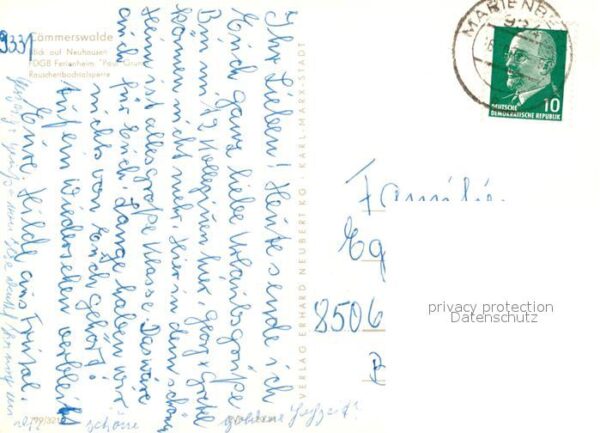 9331
Cämmerswalde
Blick auf Neuhausen
FDGB Ferienheim "Paul Gruner"
Rauschenbachtalsperre
Ihr Lieben! Heute sende ich
Euch ganz liebe Urlaubsgrüße
Bin mit 2 Kolleginnen hier, Georg u. Gretel
können nicht mehr. Hier in dem schönen
Heim ist alles große Klasse. Das wäre
auch für Euch. Lange haben wir
nichts von Euch gehört!
Auf ein Wiedersehen verbleibt
Eure Hilde aus Freital.
VERLAG ERHARD NEUBERT KG · KARL-MARX-STADT
MARIENBERG
933
DEUTSCHE
DEMOKRATISCHE REPUBLIK
10
Familie
Eg
8506
privacy protection
Datenschutz